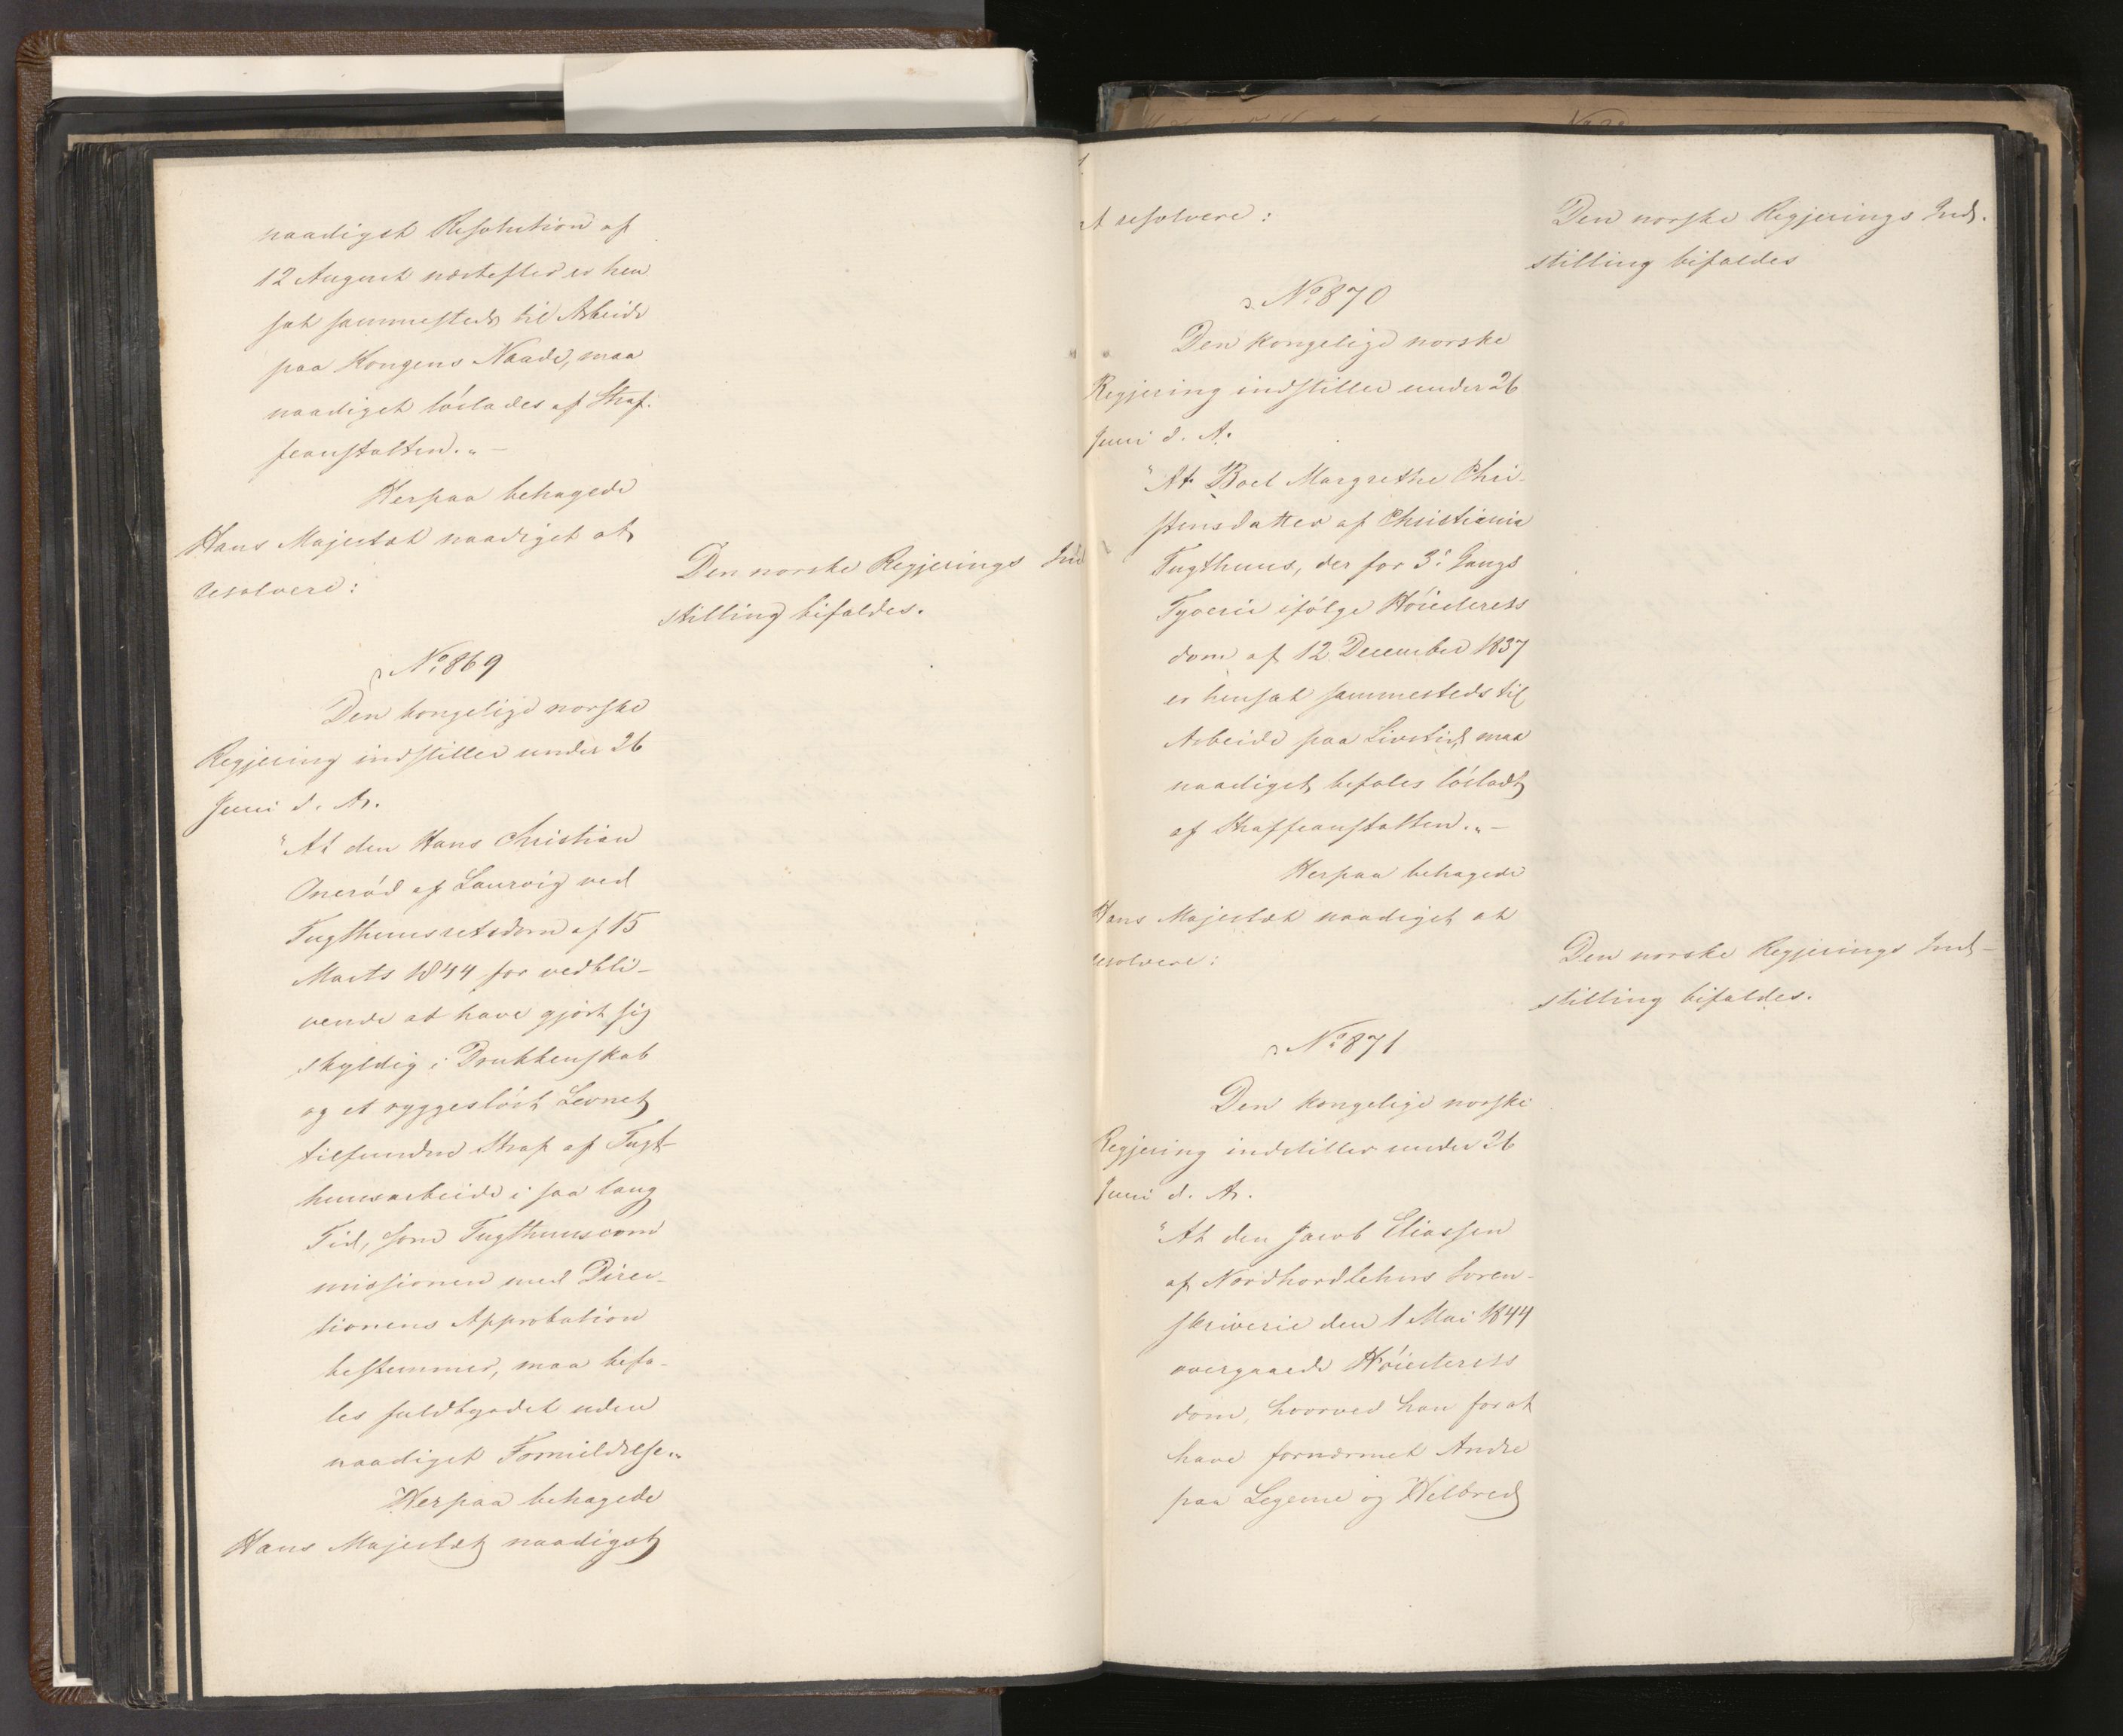 naadigst Resolution af
12 August næstefter er hen
sat sammesteds til Arbeide
paa Kongens Naade, maa
naadigst löslades af Straf-
feanstalten."-
Herpaa behagede
Hans Majestæt naadigst at
resolvere:
Den norske Regjerings Ind
stilling bifaldes.
No 869
Den kongelige norske
Regjering indstiller under 26
Juni d. A.
"At den Hans Christian
Onsröd af Laurvig ved
Tugthuusretsdom af 15
Marts 1844 for vedbli-
vende at have gjort sig
skyldig i Drukkenskab
og et ryggeslöst Levnet
tilfundne Straf af Tugt-
huusarbeide i saa lang
Tid, som Tugthuuscom
missionen med Direc-
tionens Approbation
bestemmer, maa befa-
les fuldbyrdet uden
naadigst Formildelse."
Herpaa behagede
Hans Majestæt naadigst
at resolvere:
Den norske Regjerings Ind-
stilling bifaldes
No 870
Den kongelige norske
Regjering indstiller under 26
Juni d. A.
"At Boel Margrethe Chri-
stensdatter af Christiania
Tugthuus, der for 3die Gangs
Tyverie ifölge Höiesterets
dom af 12 December 1837
er hensat sammesteds til
Arbeide paa Livstid, maa
naadigst befales lösladt
af Straffeanstalten."-
Herpaa behagede
Hans Majestæt naadigst at
resolvere:
Den norske Regjerings Ind-
stilling bifaldes.
No 871
Den kongelige norske
Regjering indstiller under 26
Juni d. A.
"At den Jacob Eliassen
af Nordhordlehns Soren-
skriverie den 1 Mai 1844
overgaaede Höiesterets
dom, hvorved han for at
have fornærmet Andre
paa Legeme og Helbred